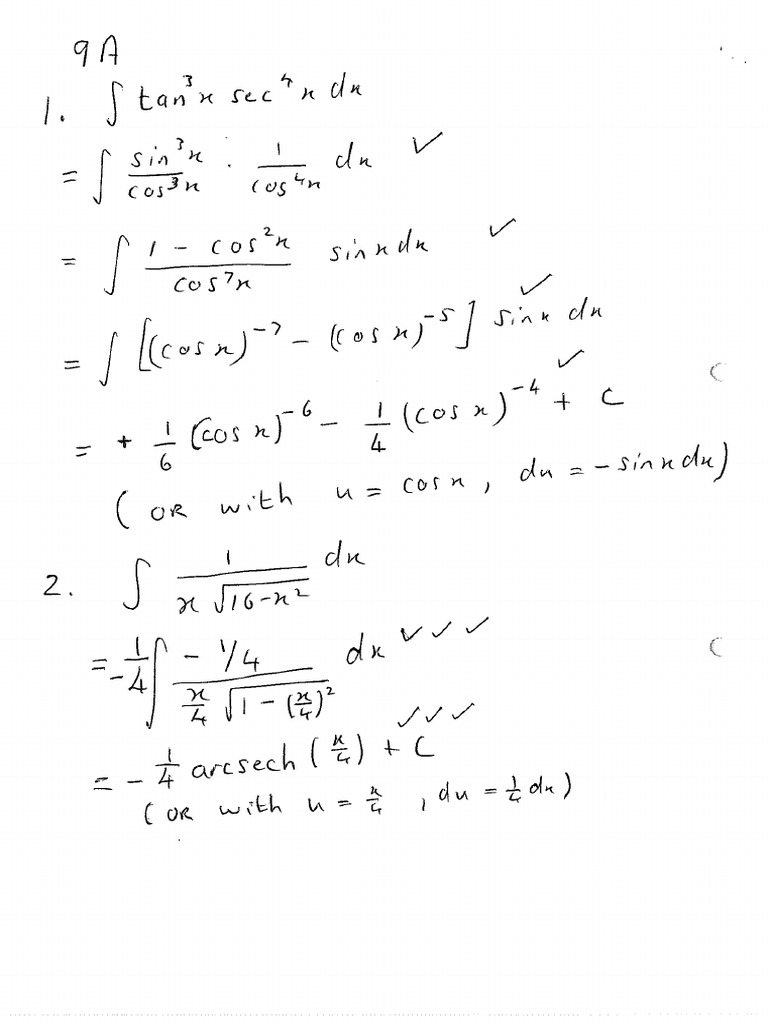 9A
1. ∫ tan³x sec⁴x dx
= ∫ sin³x/cos³x · 1/cos⁴x dx ✓
= ∫ (1 - cos²x)/cos⁷x sinx dx ✓
= ∫ [(cos x)⁻⁷ - (cos x)⁻⁵] sinx dx ✓
= + 1/6 (cos x)⁻⁶ - 1/4 (cos x)⁻⁴ + C ✓
(OR with u = cosx, du = -sinx dx)
2. ∫ 1/(x √(16-x²)) dx
= -1/4 ∫ (-1/4)/(x/4 √(1-(x/4)²)) dx ✓✓✓
= -1/4 arcsech (x/4) + C ✓✓✓
(OR with u = x/4, du = 1/4 dx)